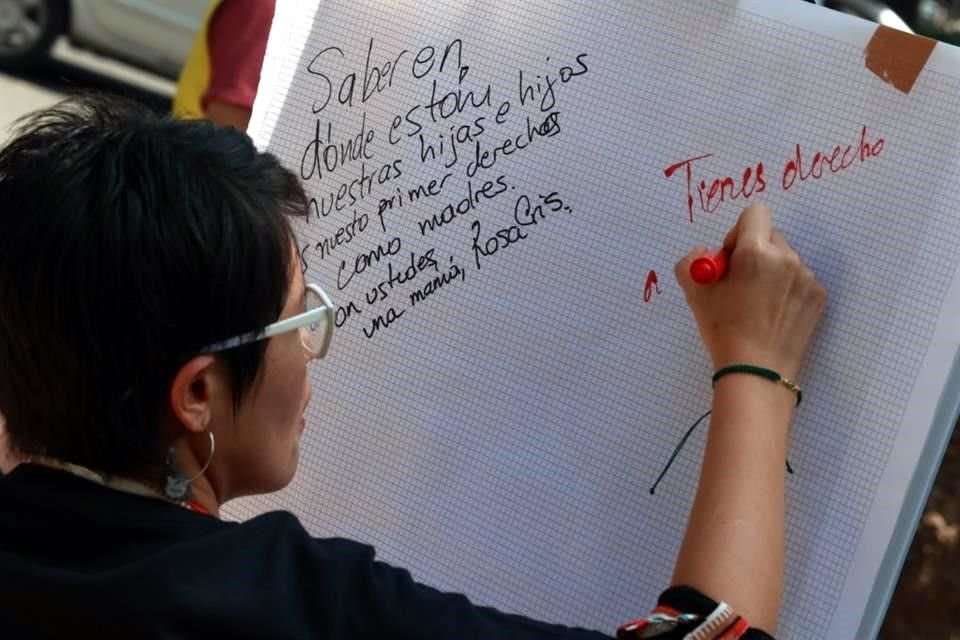 Saber en
dónde están
nuestras hijas e hijos
s nuesto primer derechos
como madres.
on ustedes,
una mamá, Rosa Cris.
Tienes derecho
a